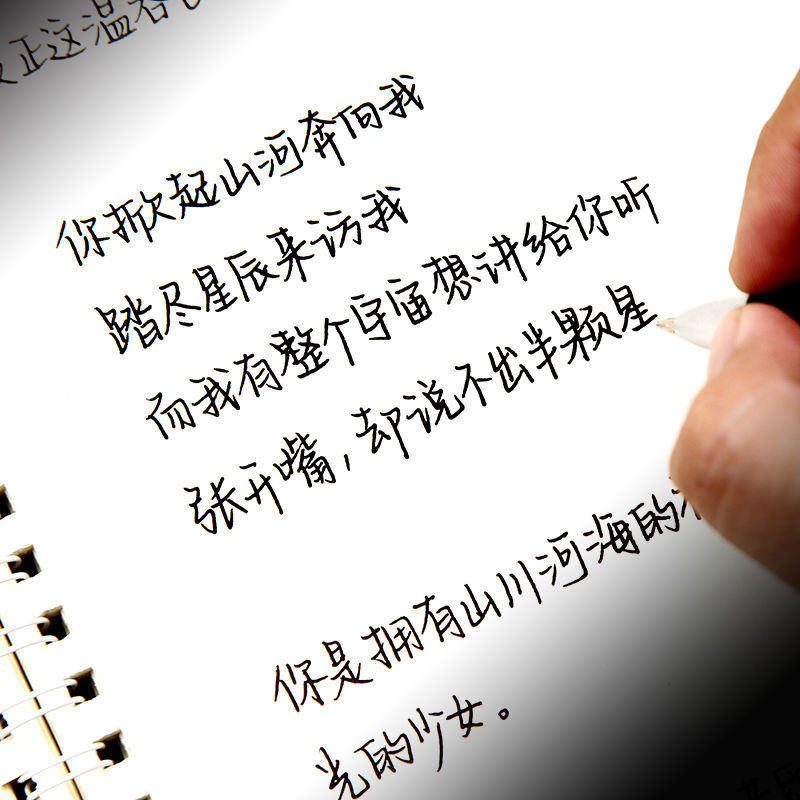 正这温吞
你掀起山河奔向我
踏尽星辰来访我
而我有整个宇宙想讲给你听
张开嘴，却说不出半颗星
你是拥有山川河海的
光的少女。